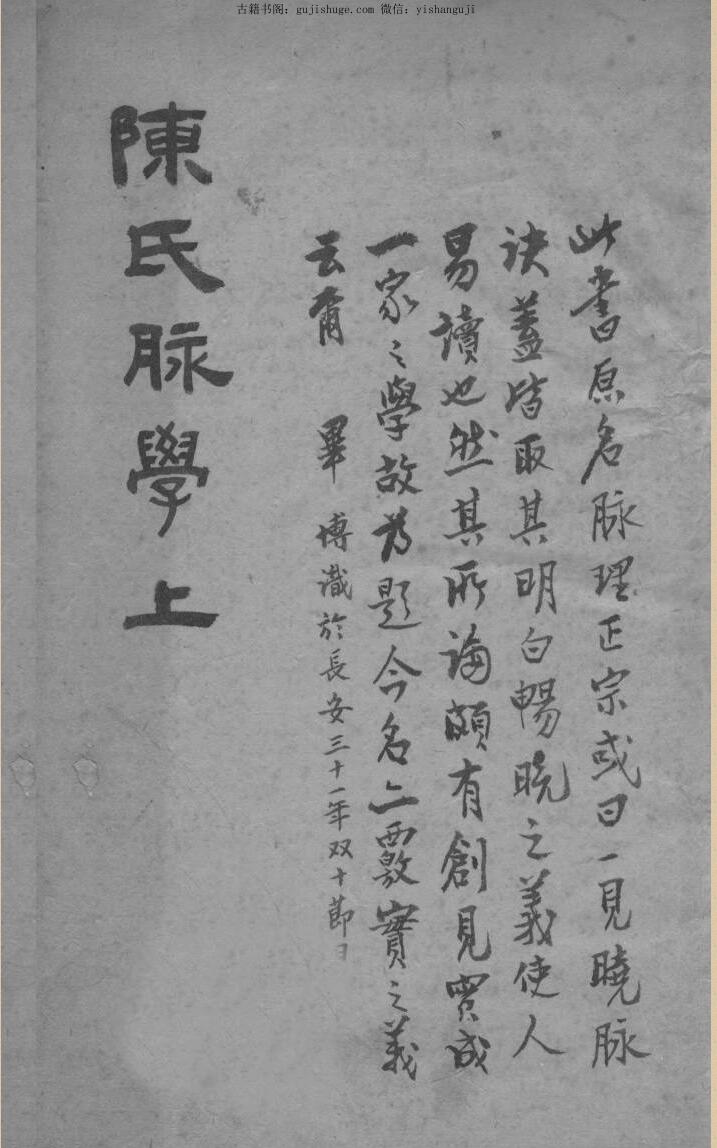 古籍书阁：gujishuge.com 微信：yishanguji
此書原名脉理正宗或曰一見曉脉
訣蓋皆取其明白暢曉之義使人
易讀也然其所論頗有創見實成
一家之學故为題今名亦覈實之義
云爾 畢博識於長安三十一年双十節日
陳氏脉學 上